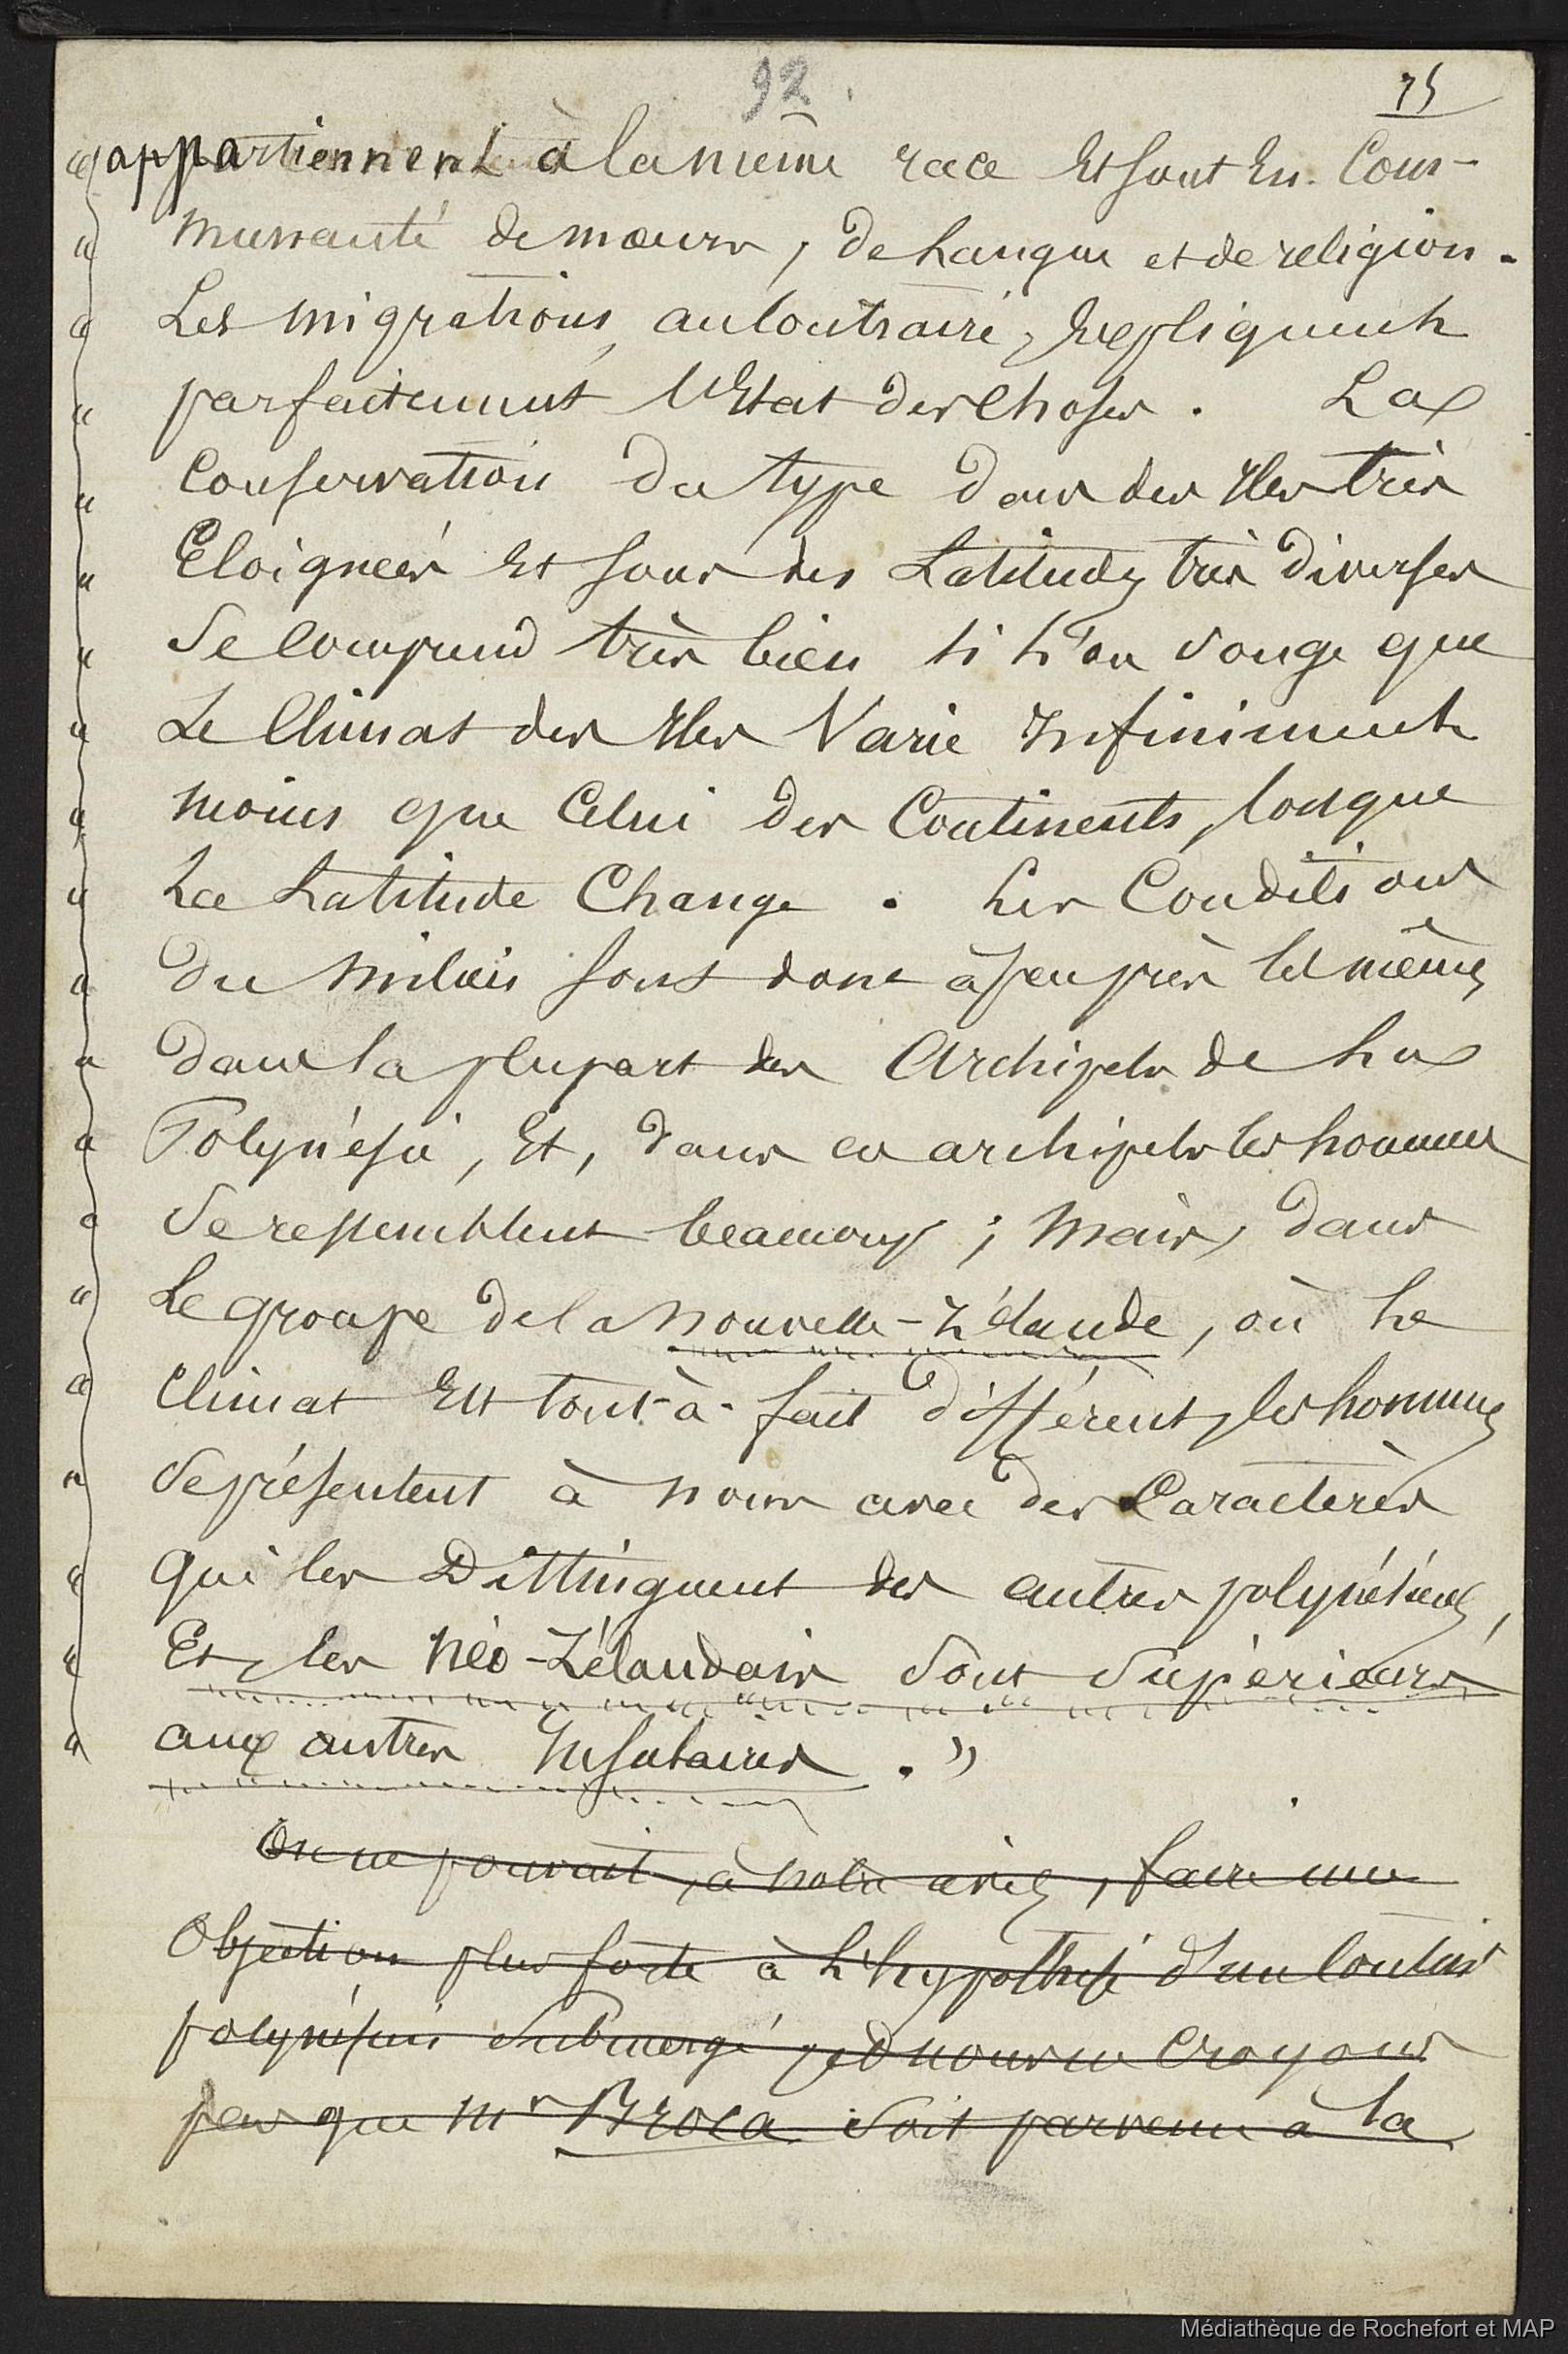 92.
75
" appartiennent à la même race Et sont En Com-
" munauté de mœurs, de Langue et de religion.
" Les migrations, au Contraire, Expliquent
parfaitement l'Etat des Choses. La
" Conservation du type dans des Iles très
" Eloignées Et sous des Latitudes très diverses
" Se Comprend très bien si L'on songe que
" Le Climat des Iles Varie Infiniment
" moins que Celui des Continents, lorsque
" La Latitude Change. Les Conditions
" du milieu sont donc à peu près les mêmes
" dans la plupart des Archipels de La
" Polynésie, Et, dans ces archipels les hommes
" Se ressemblent beaucoup ; Mais, dans
" Le groupe de la Nouvelle-Zélande, où Le
" Climat Est tout-à-fait différent, les hommes
" Se présentent à nous avec des Caractères
" Qui les Distinguent des autres polynésiens,
" Et, les Néo-Zélandais Sont Supérieurs
" aux autres Insulaires. "
On ne pouvait, à notre avis, faire une
Objection plus forte à L'hypothèse d'un Contint
polynésien Submergé, et nous ne Croyons
pas que Mr Broca soit parvenu à la
Médiathèque de Rochefort et MAP